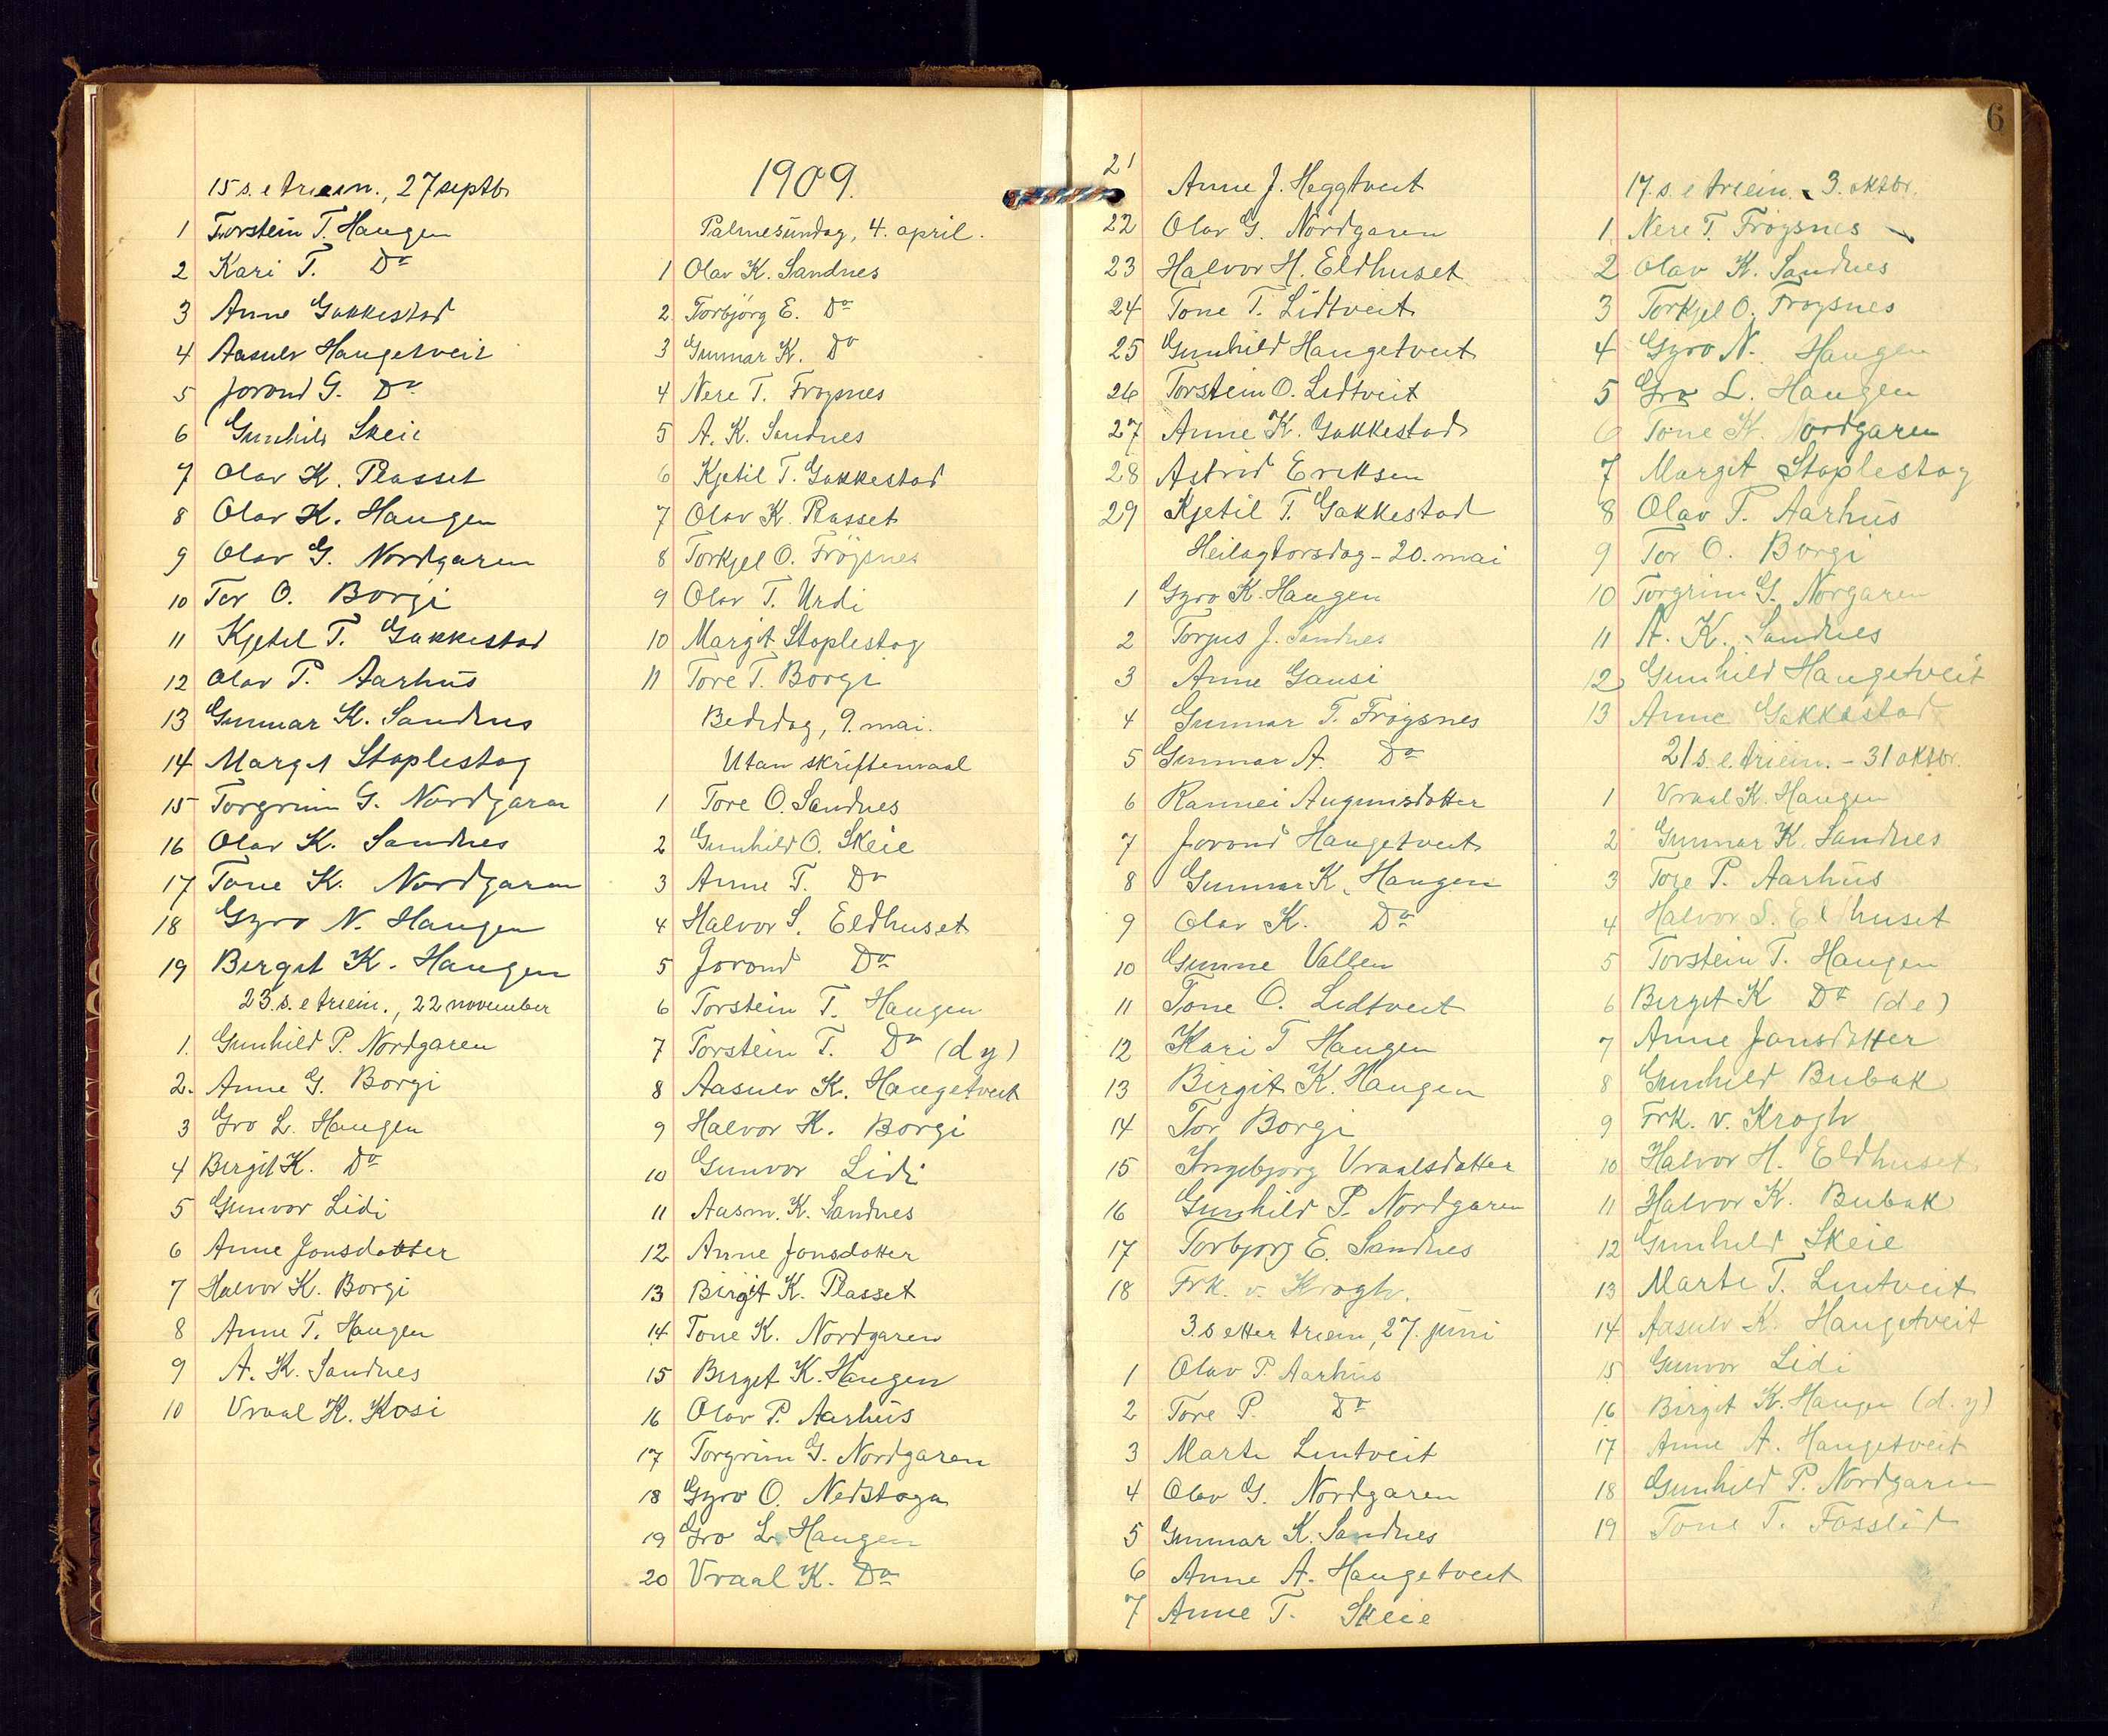 15 s. e triein., 27 septbr
1 Torstein T. Haugen
2 Kari T. Do
3 Anne Gakkestad
4 Aasulv Haugetveit
5 Jorond G. Do
6 Gunhild Skeie
7 Olav K. Plasset
8 Olav K. Haugen
9 Olav G. Nordgaren
10 Tor O. Borgi
11 Kjetil T. Gakkestad
12 Olav P. Aarhus
13 Gunnar K. Sandnes
14 Margit Stoplestog
15 Torgrim G. Nordgaren
16 Olav K. Sandnes
17 Tone K. Nordgaren
18 Gyro N. Haugen
19 Birgit K. Haugen
23. s. e triein., 22 november
1. Gunhild P. Nordgaren
2. Anne G. Borgi
3 Gro L. Haugen
4 Birgit K. Do
5 Gunvor Lidi
6 Anne Jonsdotter
7 Halvor K. Borgi
8 Anne T. Haugen
9 A. K. Sandnes
10 Vraal K. Kosi
1909.
Palmesundag, 4. april.
1 Olav K. Sandnes
2 Torbjörg E. Do
3 Gunnar K. Do
4 Nere T. Froysnes
5 A. K. Sandnes
6 Kjetil T. Gakkestad
7 Olav K. Plasset
8 Torkjel O. Fröysnes
9 Olav T. Urdi
10 Margit Stoplestog
11 Tore T. Borgi
Bededag, 9. mai.
Utan skriftemaal
1 Tore O. Sandnes
2 Gunhild O. Skeie
3 Anne T. Do
4 Halvor S. Eldhuset
5 Jorond Do
6 Torstein T. Haugen
7 Torstein T. Do (d y)
8 Aasulv K. Haugetveit
9 Halvor K. Borgi
10 Gunvor Lidi
11 Aasm. K. Sandnes
12 Anne Jonsdotter
13 Birgit K. Plasset
14 Tone K. Nordgaren
15 Birgit K. Haugen
16 Olav P. Aarhus
17 Torgrim G. Nordgaren
18 Gyro O. Nedstoga
19 Gro L. Haugen
20 Vraal K. Do
6
21 Anne J. Heggtveit
22 Olav G. Nordgaren
23 Halvor H. Eldhuset
24 Tone T. Lidtveit
25 Gunhild Haugetveit
26 Torstein O. Lidtveit
27 Anne K. Gakkestad
28 Astrid Eriksen
29 Kjetil T. Gakkestad
Heilagtorsdag - 20. mai
1 Gyro K. Haugen
2 Torjus J. Sandnes
3 Anne Gausi
4 Gunnar T. Fröysnes
5 Gunnar A. Do
6 Rannei Augunsdotter
7 Jorond Haugetveit
8 Gunnar K. Haugen
9 Olav K. Do
10 Gunne Vallen
11 Tone O. Lidtveit
12 Kari T Haugen
13 Birgit K. Haugen
14 Tor Borgi
15 Ingebjorg Vraalsdotter
16 Gunhild P. Nordgaren
17 Torbjorg E. Sandnes
18 Frk. v. Krogh.
3. s etter triein, 27. juni
1 Olav P. Aarhus
2 Tore P. Do
3 Marte Lintveit
4 Olav G. Nordgaren
5 Gunnar K. Sandnes
6 Anne A. Haugetveit
7 Anne T. Skeie
17. s. e triein. 3. oktbr.
1. Nere T. Fröysnes
2 Olav K. Sandnes
3 Torkjel O. Froysnes
4 Gyro N. Haugen
5 Gro L. Haugen
6 Tone K. Nordgaren
7 Margit Stoplestog
8 Olav P. Aarhus
9 Tor O. Borgi
10 Torgrim G. Norgaren
11 A. K. Sandnes
12 Gunhild Haugetveit
13 Anne Gakkestad
21 s. e. triein. - 31 oktbr.
1 Vraal K. Haugen
2 Gunnar K. Sandnes
3 Tore P. Aarhus
4 Halvor S. Eldhuset
5 Torstein T. Haugen
6 Birgit K Do (d e)
7 Anne Jonsdotter
8 Gunhild Bubak
9 Frk. v. Krogh
10 Halvor H. Eldhuset
11 Halvor K. Bubak
12 Gunhild Skeie
13 Marte T. Lintveit
14 Aasulv K. Haugetveit
15 Gunvor Lidi
16 Birgit K. Haugen (d. y)
17 Anne A. Haugetveit
18 Gunhild P. Nordgaren
19 Tone T. Fosslid